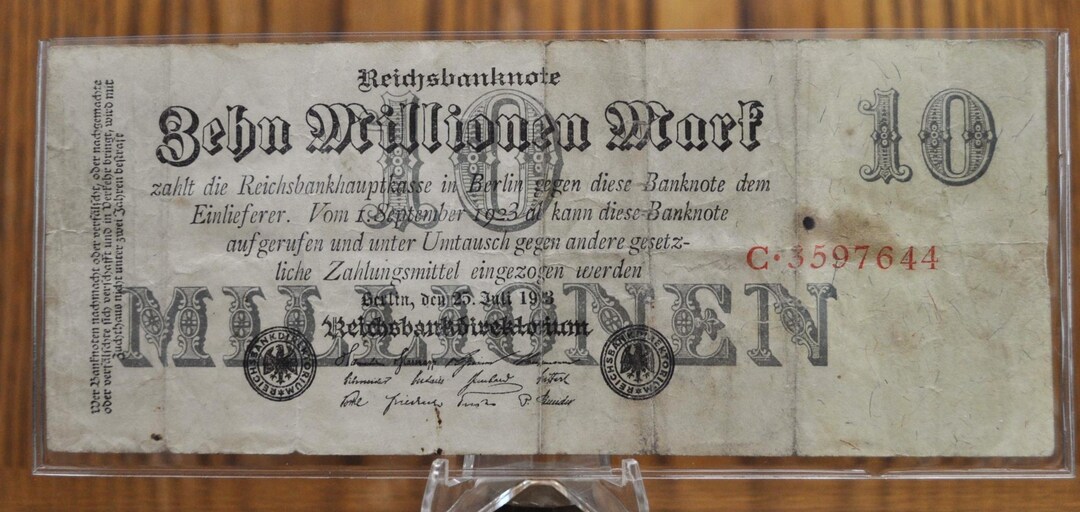 Reichsbanknote
Zehn Millionen Mark
10
10
zahlt die Reichsbankhauptkasse in Berlin gegen diese Banknote dem
Einlieferer. Vom 1. September 1923 ab kann diese Banknote
aufgerufen und unter Umtausch gegen andere gesetz-
liche Zahlungsmittel eingezogen werden
C·3597644
Berlin, den 25. Juli 1923
MILLIONEN
Reichsbankdirektorium
REICHSBANKDIREKTORIUM
REICHSBANKDIREKTORIUM
Wer Banknoten nachmacht oder verfälscht, oder nachgemachte
oder verfälschte sich verschafft und in Verkehr bringt, wird mit
Zuchthaus nicht unter zwei Jahren bestraft